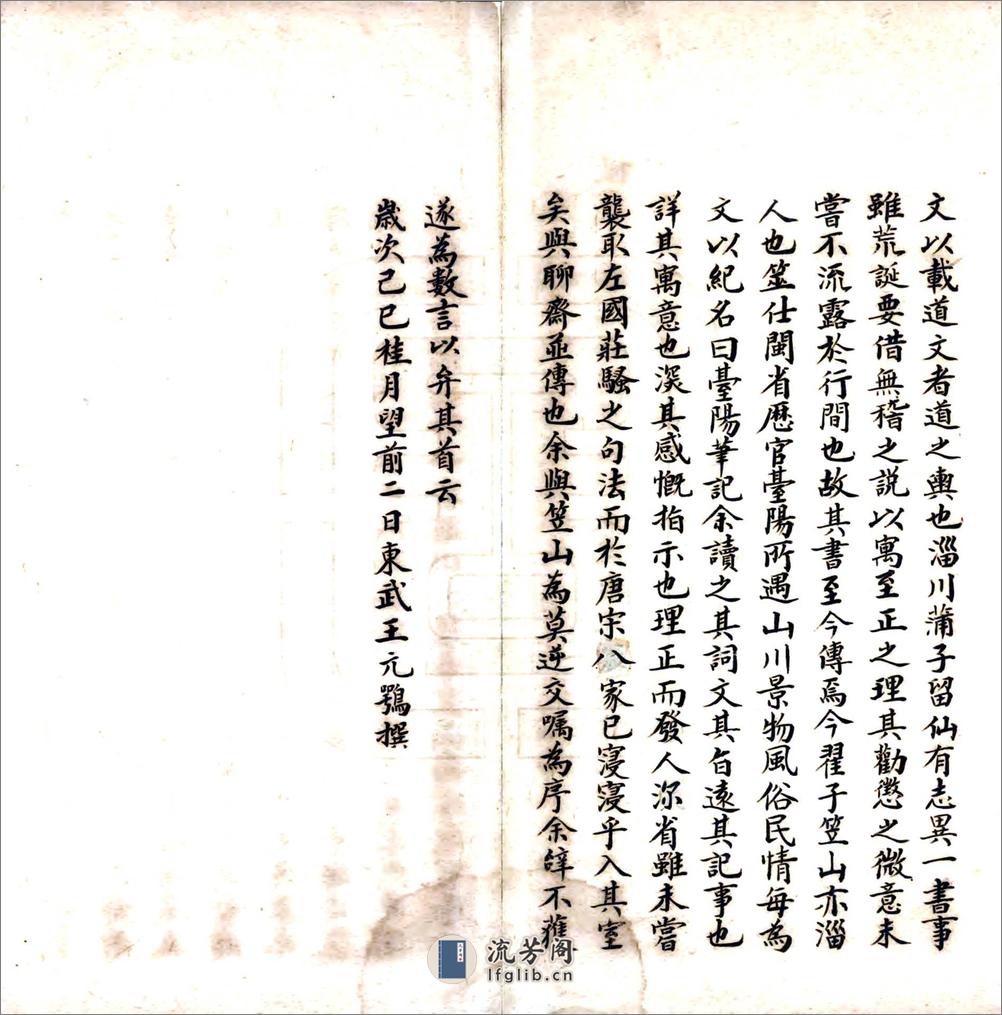 文以載道文者道之輿也淄川蒲子留仙有志異一書事
雖荒誕要借無稽之説以寓至正之理其勸懲之微意未
嘗不流露於行間也故其書至今傳焉今翟子笠山亦淄
人也筮仕閩省歷官臺陽所遇山川景物風俗民情每為
文以紀名曰臺陽筆記余讀之其詞文其旨遠其記事也
詳其寓意也深其感慨指示也理正而發人深省雖未嘗
襲取左國莊騷之句法而於唐宋八家已寖寖乎入其室
矣與聊齋並傳也余與笠山為莫逆交嘱為序余辞不獲
遂為數言以弁其首云
歲次己巳桂月望前二日東武王亢鶚撰
流芳阁
lfglib.cn